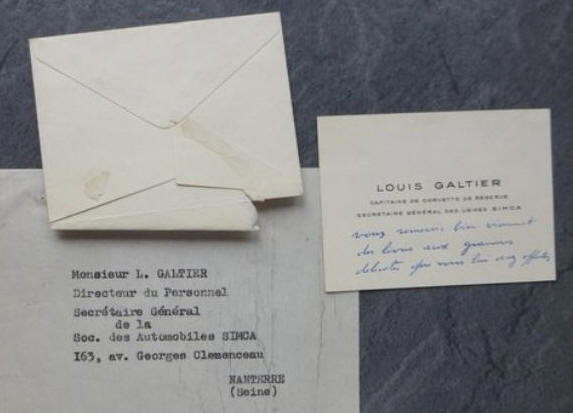 LOUIS GALTIER
CAPITAINE DE CORVETTE DE RÉSERVE
SECRÉTAIRE GÉNÉRAL DES USINES SIMCA
vous remercie bien vivement
des livres aux gravures
que vous lui avez
Monsieur L. GALTIER
Directeur du Personnel
Secrétaire Général
de la
Soc. des Automobiles SIMCA
I63, av. Georges Clemenceau
NANTERRE
(Seine)